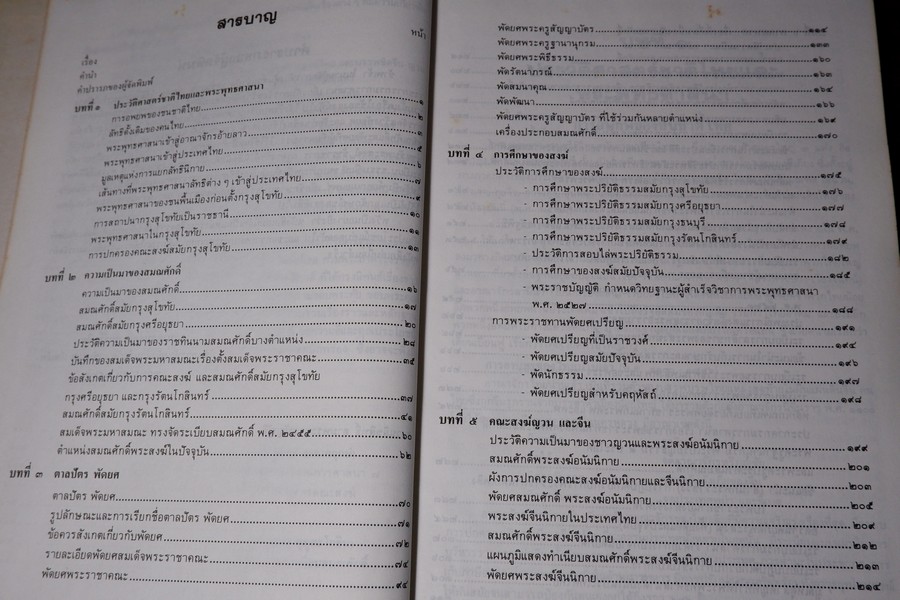 สารบาญ
หน้า
เรื่อง
คำนำ
คำปรารภของผู้จัดพิมพ์
บทที่ ๑ ประวัติศาสตร์ชาติไทยและพระพุทธศาสนา
การอพยพของชนชาติไทย ๑
ลัทธิดั้งเดิมของคนไทย ๒
พระพุทธศาสนาเข้าสู่อาณาจักรอ้ายลาว ๓
พระพุทธศาสนาเข้าสู่ประเทศไทย ๕
มูลเหตุแห่งการแยกลัทธินิกาย ๖
เส้นทางที่พระพุทธศาสนาลัทธิต่าง ๆ เข้าสู่ประเทศไทย ๗
พระพุทธศาสนาของชนพื้นเมืองก่อนตั้งกรุงสุโขทัย ๙
การสถาปนากรุงสุโขทัยเป็นราชธานี ๑๐
พระพุทธศาสนาในกรุงสุโขทัย ๑๑
การปกครองคณะสงฆ์สมัยกรุงสุโขทัย ๑๓
บทที่ ๒ ความเป็นมาของสมณศักดิ์
ความเป็นมาของสมณศักดิ์ ๑๖
สมณศักดิ์สมัยกรุงสุโขทัย ๑๗
สมณศักดิ์สมัยกรุงศรีอยุธยา ๒๐
ประวัติความเป็นมาของราชทินนามสมณศักดิ์บางตำแหน่ง ๒๘
บันทึกของสมเด็จพระมหาสมณะเรื่องตั้งสมเด็จพระราชาคณะ ๓๕
ข้อสังเกตเกี่ยวกับการคณะสงฆ์ และสมณศักดิ์สมัยกรุงสุโขทัย
กรุงศรีอยุธยา และกรุงรัตนโกสินทร์ ๓๗
สมณศักดิ์สมัยกรุงรัตนโกสินทร์ ๔๑
สมเด็จพระมหาสมณะ ทรงจัดระเบียบสมณศักดิ์ พ.ศ. ๒๔๕๕ ๖๐
ตำแหน่งสมณศักดิ์พระสงฆ์ในปัจจุบัน ๖๒
บทที่ ๓ ตาลปัตร พัดยศ
ตาลปัตร พัดยศ ๗๐
รูปลักษณะและการเรียกชื่อตาลปัตร พัดยศ ๗๑
ข้อควรสังเกตเกี่ยวกับพัดยศ ๗๒
รายละเอียดพัดยศสมเด็จพระราชาคณะ ๗๔
พัดยศพระราชาคณะ ๙๔
พัดยศพระครูสัญญาบัตร ๑๑๔
พัดยศพระครูฐานานุกรม ๑๓๓
พัดยศพระพิธีธรรม ๑๖๐
พัดรัตนาภรณ์ ๑๖๓
พัดสมนาคุณ ๑๖๔
พัดพัฒนา ๑๖๖
พัดยศพระครูสัญญาบัตร ที่ใช้ร่วมกันหลายตำแหน่ง ๑๖๙
เครื่องประกอบสมณศักดิ์ ๑๗๐
บทที่ ๔ การศึกษาของสงฆ์
ประวัติการศึกษาของสงฆ์ ๑๗๕
- การศึกษาพระปริยัติธรรมสมัยกรุงสุโขทัย ๑๗๖
- การศึกษาพระปริยัติธรรมสมัยกรุงศรีอยุธยา ๑๗๗
- การศึกษาพระปริยัติธรรมสมัยกรุงธนบุรี ๑๗๘
- การศึกษาพระปริยัติธรรมสมัยกรุงรัตนโกสินทร์ ๑๗๙
- ประวัติการสอบไล่พระปริยัติธรรม ๑๘๒
- การศึกษาของสงฆ์สมัยปัจจุบัน ๑๘๕
- พระราชบัญญัติ กำหนดวิทยฐานะผู้สำเร็จวิชาการพระพุทธศาสนา
พ.ศ. ๒๕๒๗ ๑๘๘
การพระราชทานพัดยศเปรียญ ๑๙๑
- พัดยศเปรียญที่เป็นราชวงศ์ ๑๙๔
- พัดยศเปรียญสมัยปัจจุบัน ๑๙๖
- พัดนักธรรม ๑๙๗
- พัดยศเปรียญสำหรับคฤหัสถ์ ๑๙๘
บทที่ ๕ คณะสงฆ์ญวน และจีน
ประวัติความเป็นมาของชาวญวนและพระสงฆ์อนัมนิกาย ๑๙๙
สมณศักดิ์พระสงฆ์อนัมนิกาย ๒๐๑
ผังการปกครองคณะสงฆ์อนัมนิกายและจีนนิกาย ๒๐๓
พัดยศสมณศักดิ์ พระสงฆ์อนัมนิกาย ๒๐๕
พระสงฆ์จีนนิกายในประเทศไทย ๒๐๙
สมณศักดิ์พระสงฆ์จีนนิกาย ๒๑๒
แผนภูมิแสดงทำเนียบสมณศักดิ์พระสงฆ์จีนนิกาย ๒๑๓
พัดยศพระสงฆ์จีนนิกาย ๒๑๔